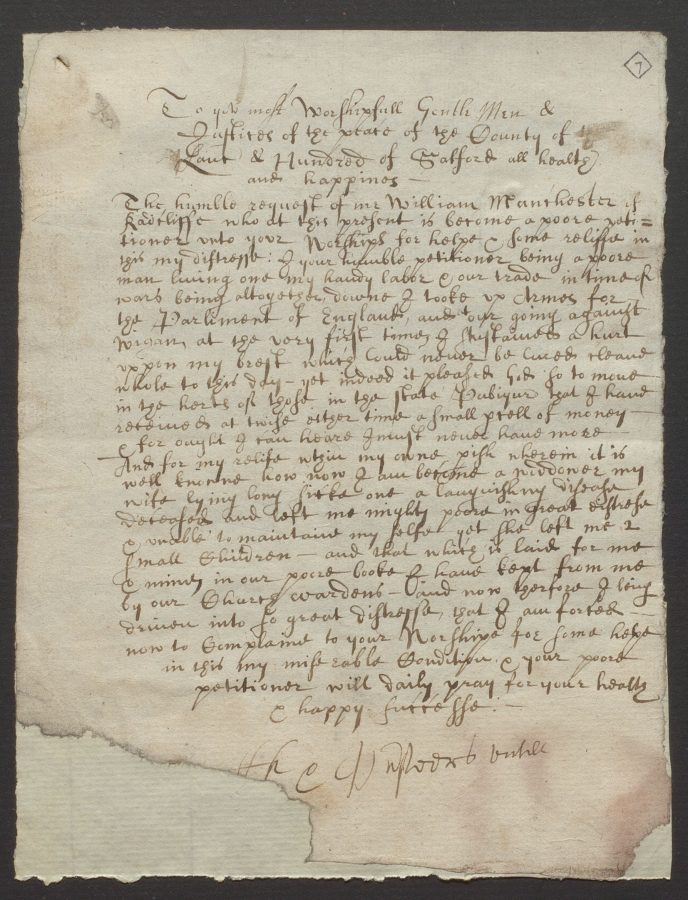 7
To yor most Worshipfull Gentle Men &
Justices of the peace of the County of
Lanc & Hundred of Salford all health
and happines –
The humble request of me William Manchester of
Radcliffe who at this present is become a poore peti=
tioner unto your Worships for helpe & some reliffe in
this my distresse: I your humble petitioner being a poore
man living one my handy labor & our trade in time of
wars being altogether downe I tooke up Armes for
the Parliment of England, and our going against
Wigan at the very first time I sustained a hurt
uppon my brest which Could never be Cured cleane
whole to this day – yet indeed it pleased God so to move
in the herts of those in the state that I have
received at twise either time a small pcell of money –
& for ought I can heare I must never have more
And for my relife wthin my owne pish wherein it is
well knowne how now I am become a widdower my
wife lying long sicke one a languishing disease
deceased and left me mighty poore in great distrese
& unable to maintaine my selfe yet she left me 2
small Children – and that which is laid for me
& mine in our poore booke I have kept from me
by our Church wardens – and now therfore I being
driven into so great distresse, that I am forced –
now to Complaine to your Worships for some helpe
in this my miserable Condition & your poore
petitioner will daily pray for your health
& happy successe –